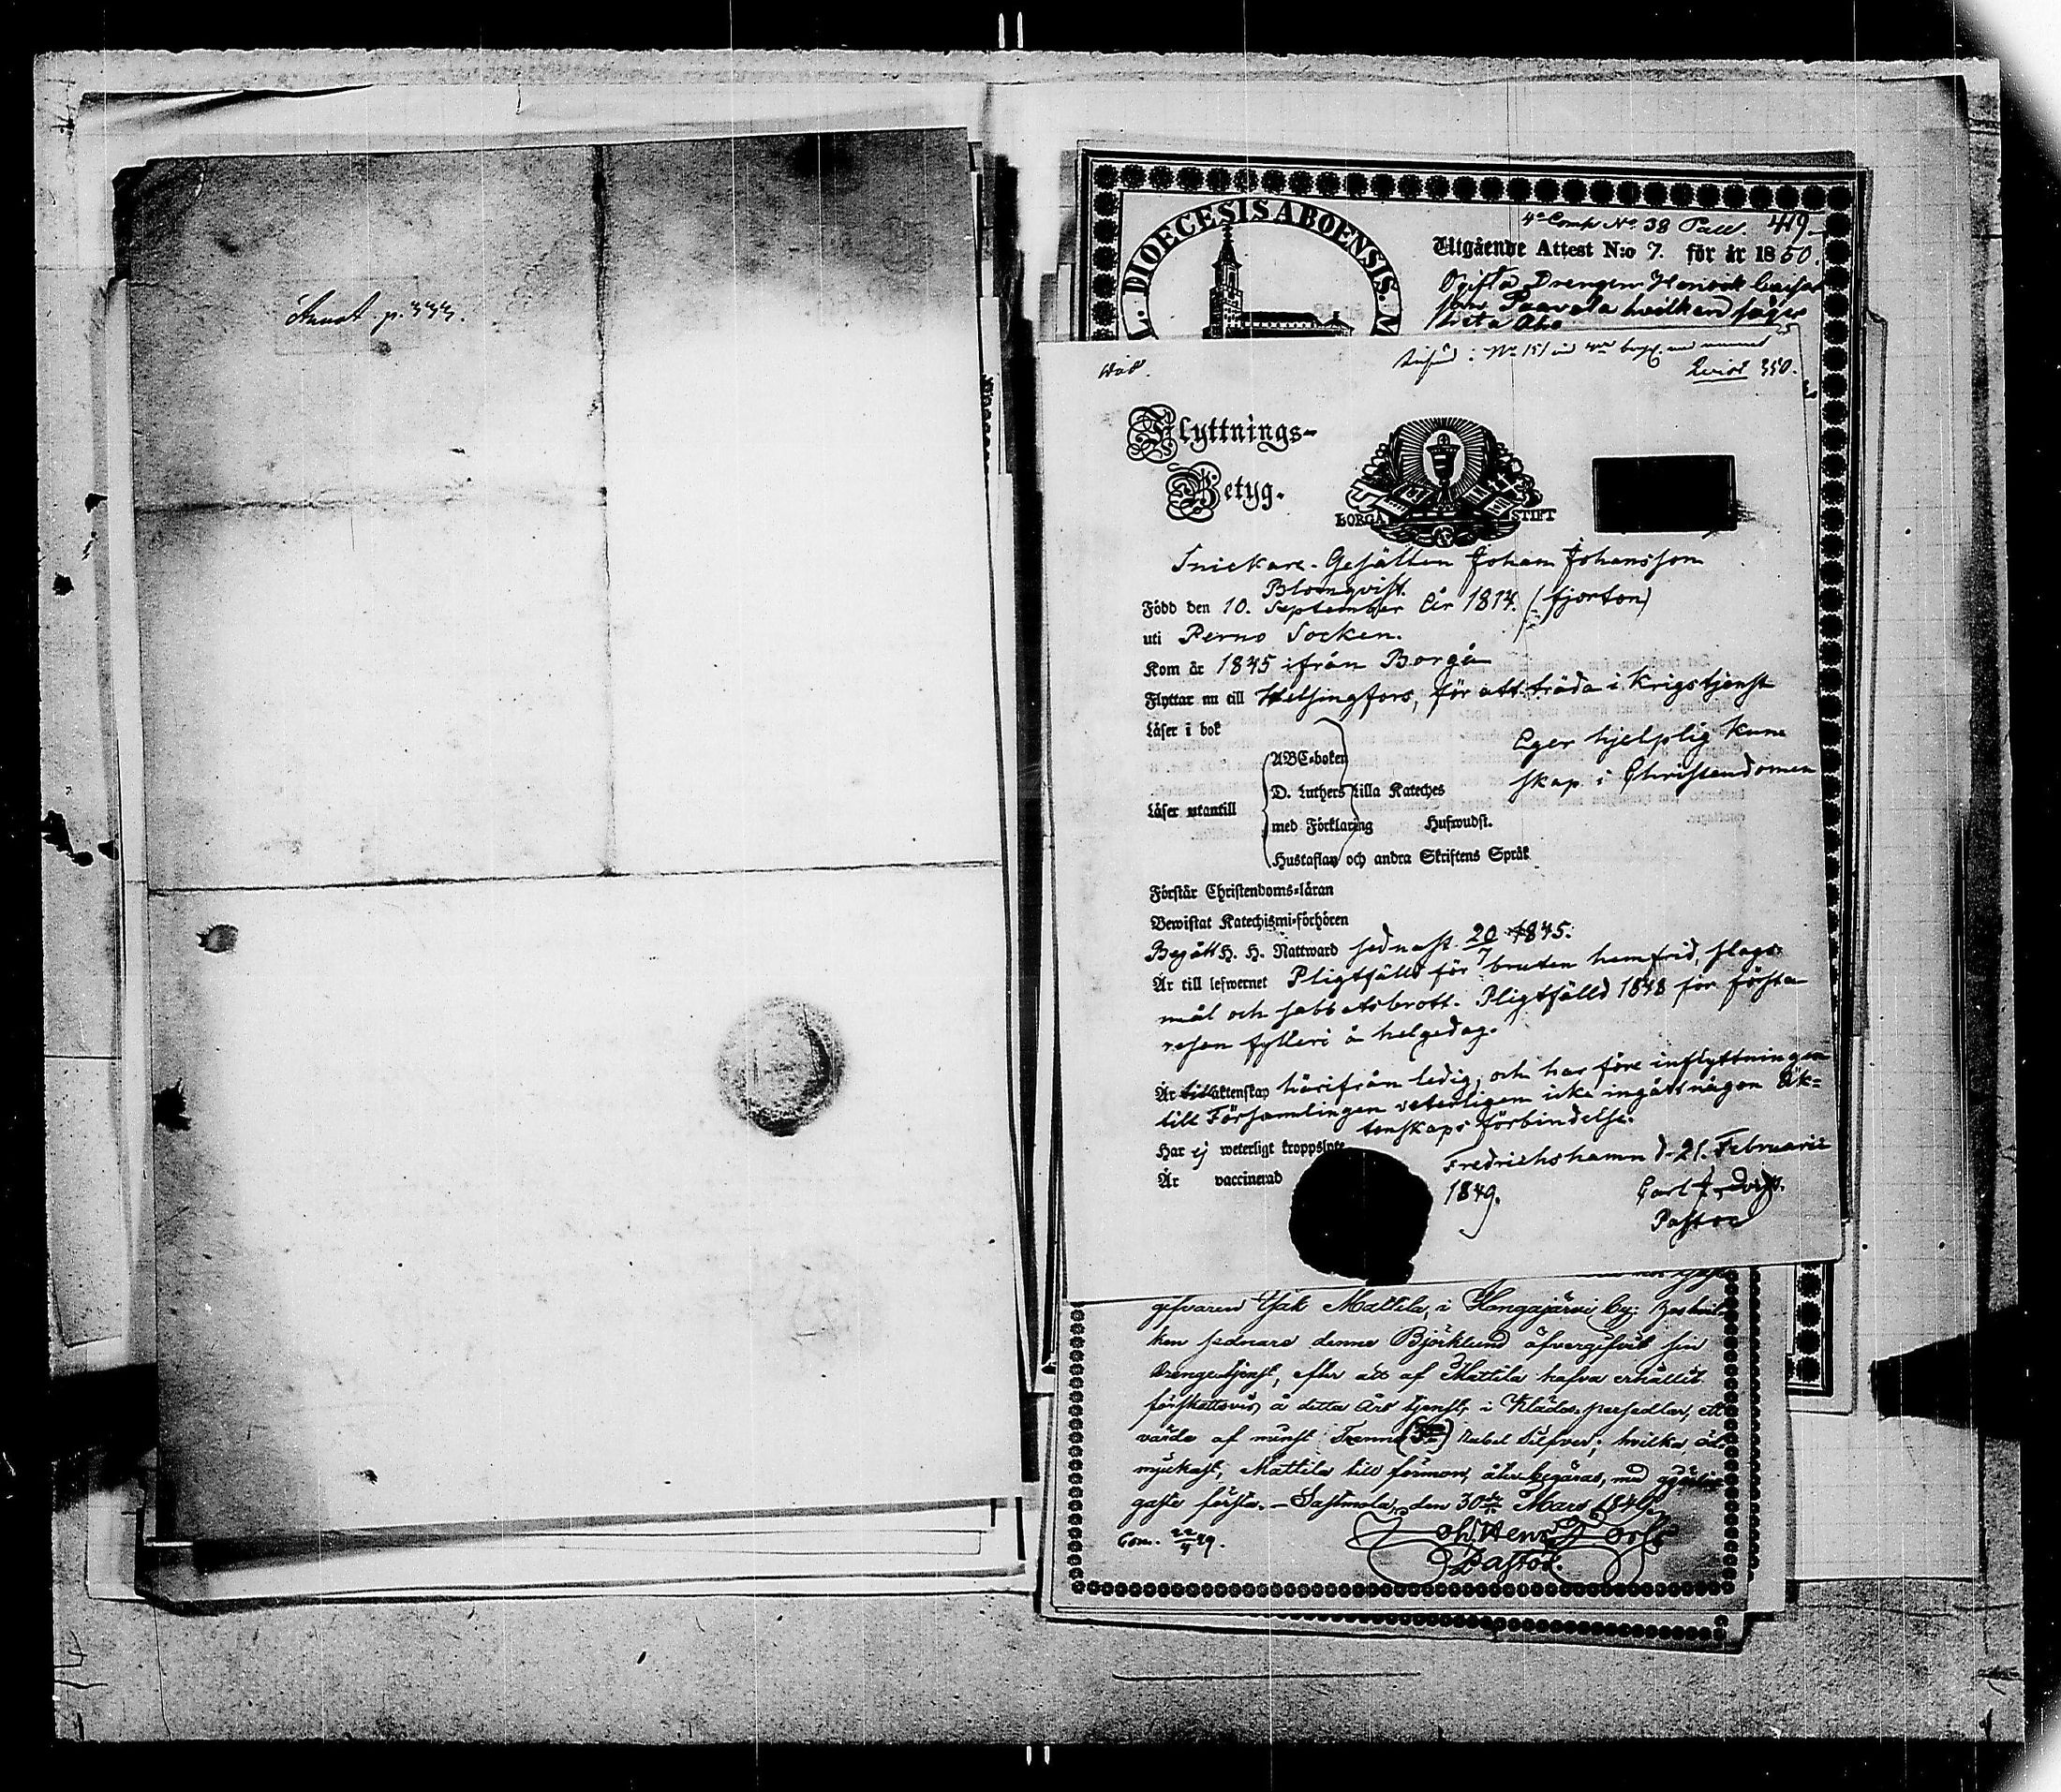 Annot. p. 333.
DIOECESIS ABOENSIS. M
4e Comp No. 38 Pall. 419.
Utgående Attest N:o 7. för år 1850.
Ogifta Drengen Henrik
Paavola hvilken
Wid.
No 151
Qvist 350.
Flyttnings-
Betyg.
BORGÅ STIFT
Snickare-Gesällen Johan Johansson
Blomqvist.
Född den 10. September år 1814. (fjorton)
uti Perno Socken.
Kom år 1845 ifrån Borgå
Flyttar nu till Helsingfors, för att träda i Krigstjenst
Läser i bok
Eger hjelplig Kun-
skap i Christendomen
Läser utantill
ABC-boken
D. Luthers lilla Kateches
med Förklaring Hufwudst.
Hustaflan och andra Skriftens Språk
Förstår Christendoms-läran
Bewistat Katechismi-förhören
Begått H. H. Nattward sednast 20/7 1845.
Är till lefwernet Pligtfälld för bruten hemfrid, slags-
mål och sabbatsbrott. Pligtfälld 1848 för första
resan fylleri å helgedag.
Är till äktenskap härifrån ledig, och har före inflyttningen
till Församlingen veterligen icke ingått någon äk-
tenskaps förbindelse.
Har ej weterligt kroppslyte
Är vaccinerad
Fredrichshamn d. 21. Februarii
1849.
Carl
Pastor
gesvaren Isak Mattila, i Hongajärvi by: hos hvil-
ken sednare denne Björklund öfvergifvit sin
drengetjenst, efter att af Mattila hafva erhållit
förskottsvis å detta års tjenst, i Klädes-persedlar, ett
värde af minst Trenne (3ne) Rubel Silfver; hvilka öd-
mjukast, Mattila till förmon, återbegäras, med
gaste första. - Sastmola, den 30de Mars 1849.
Pastor.
Com. 22/4 49.